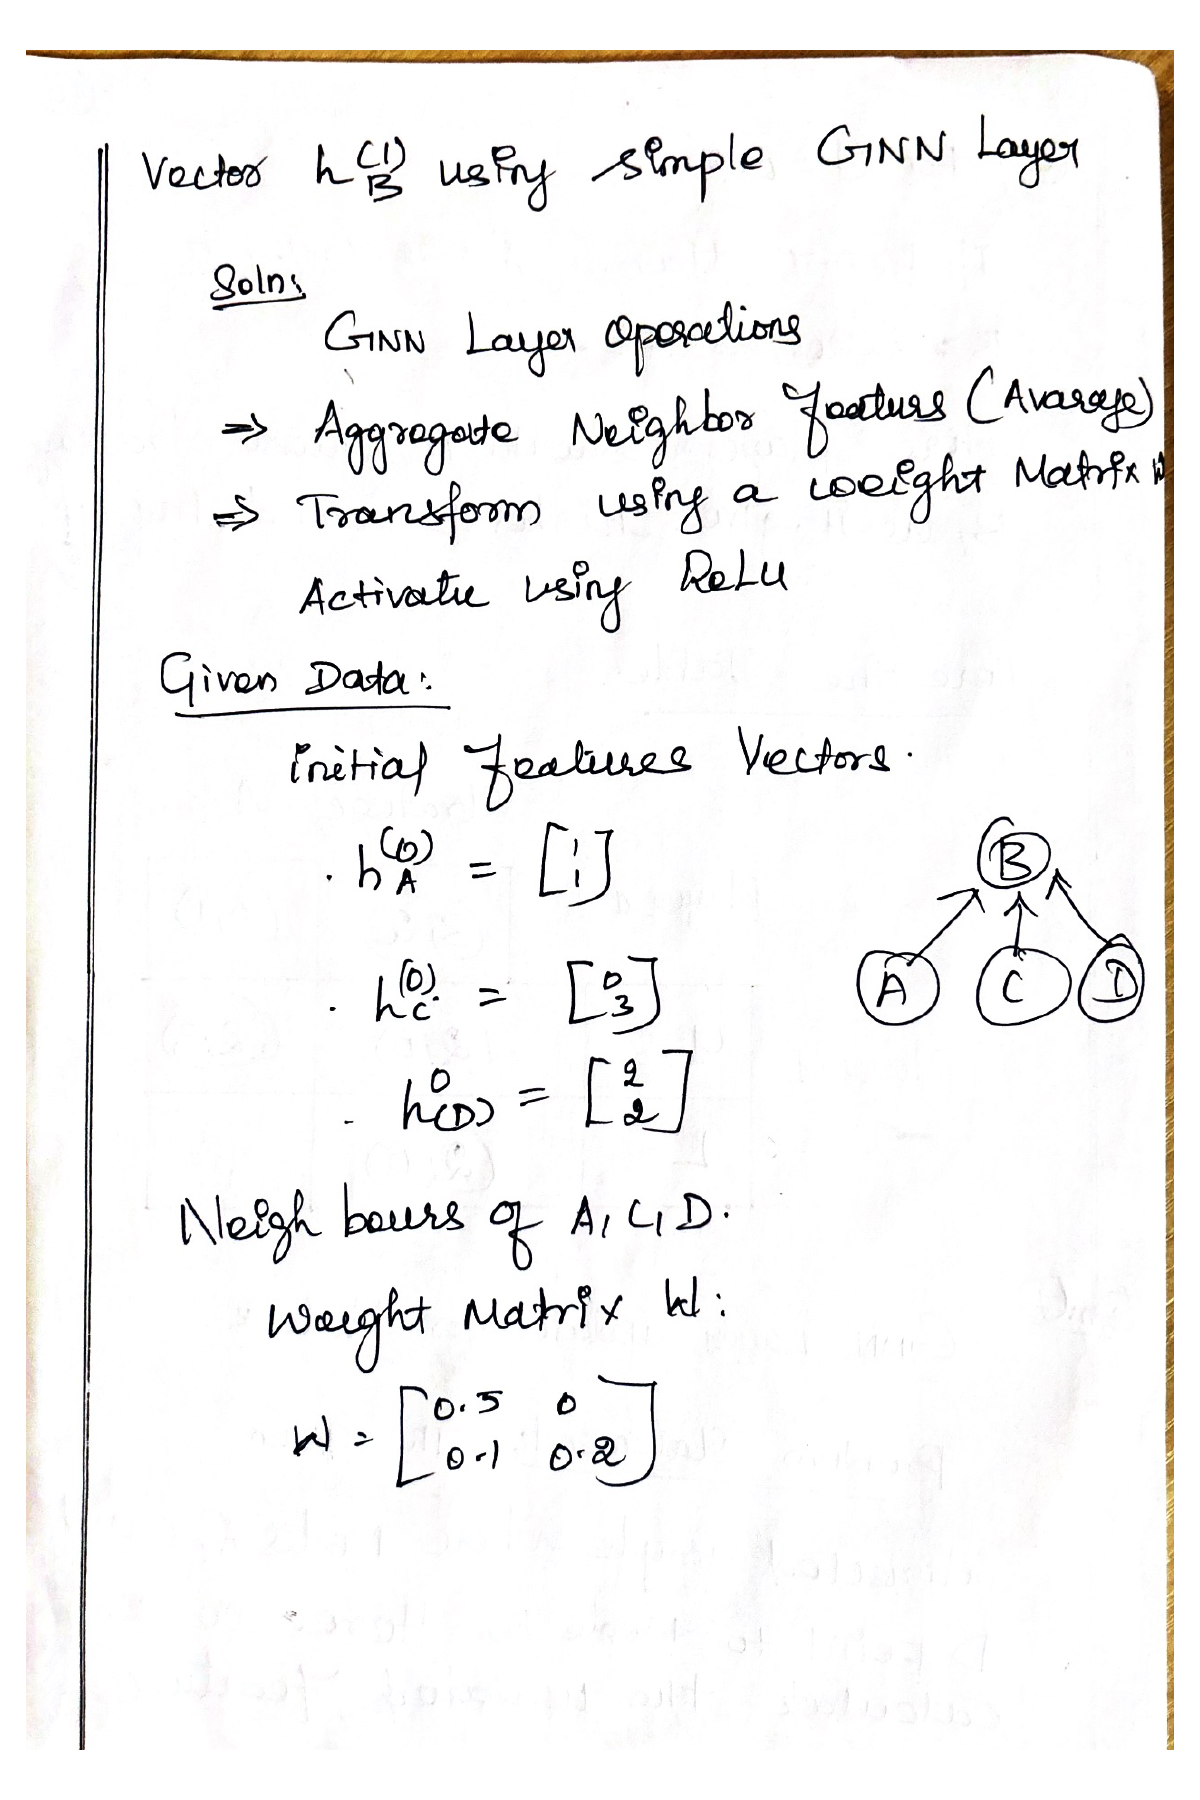 Vector h_B^(1) using simple GNN Layer
Soln:
GNN Layer operations
⇒ Aggregate Neighbor features (Avarage)
⇒ Transform using a weight Matrix W
Activate using ReLU
Given Data:
initial features Vectors.
. h_A^(0) = [1 1]
. h_C^(0) = [0 3]
. h_(D)^0 = [2 2]
B
A C D
Neighbours of A, C, D.
Weight Matrix W:
W = [0.5 0
0.1 0.2]